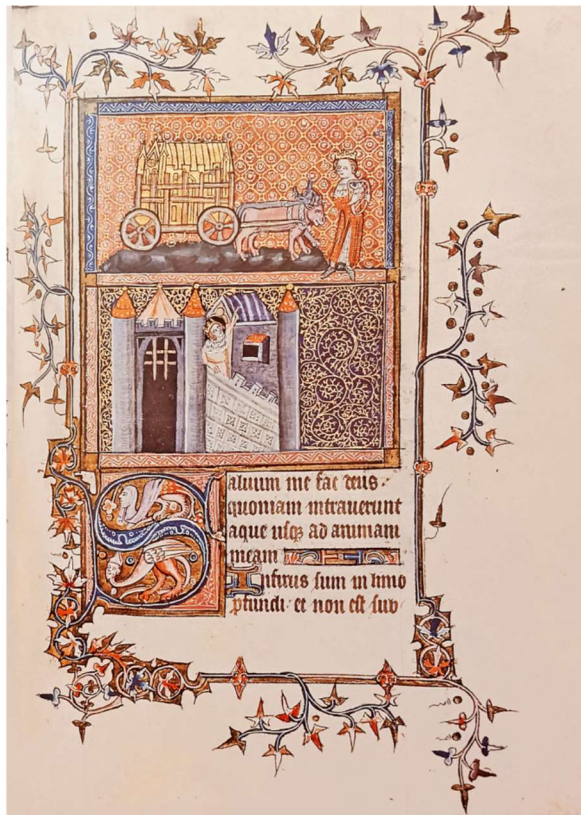 Saluum me fac deus:
quoniam intrauerunt
aque usq; ad animam
meam
Infixus sum in limo
pfundi: et non est sub